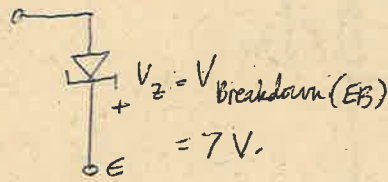 + V_z = V_Breakdown(EB)
= 7 V.
E